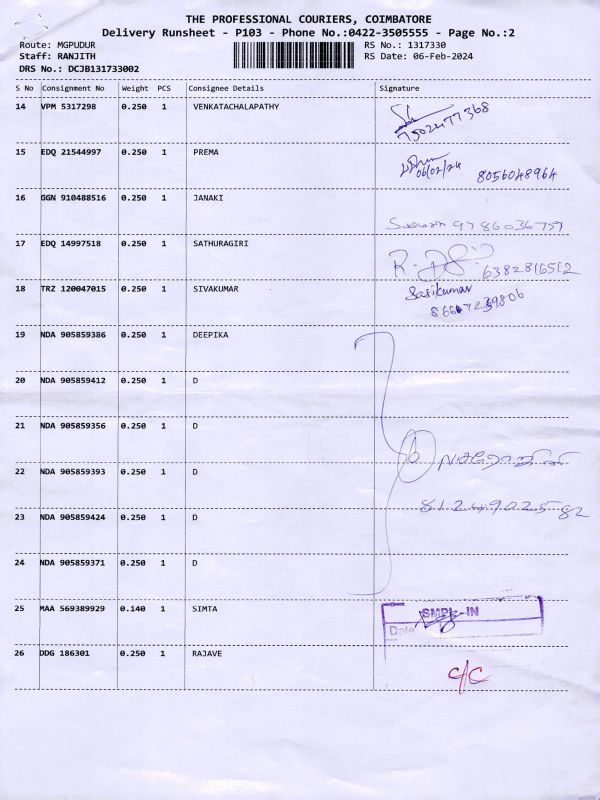 THE PROFESSIONAL COURIERS, COIMBATORE
Delivery Runsheet - P103 - Phone No.:0422-3505555 - Page No.:2
Route: MGPUDUR
RS No.: 1317330
Staff: RANJITH
RS Date: 06-Feb-2024
DRS No.: DCJB131733002
S No Consignment No Weight PCS Consignee Details Signature
14 VPM 5317298 0.250 1 VENKATACHALAPATHY
7502477368
15 EDQ 21544997 0.250 1 PREMA
06/02/24 8056048964
16 GGN 910488516 0.250 1 JANAKI
9786036757
17 EDQ 14997518 0.250 1 SATHURAGIRI
6382816512
18 TRZ 120047015 0.250 1 SIVAKUMAR
Sasikumar
19 NDA 905859386 0.250 1 DEEPIKA
20 NDA 905859412 0.250 1 D
21 NDA 905859356 0.250 1 D
22 NDA 905859393 0.250 1 D
23 NDA 905859424 0.250 1 D
8124902582
24 NDA 905859371 0.250 1 D
25 MAA 569389929 0.140 1 SIMTA
SMPL-IN
Date
26 DDG 186301 0.250 1 RAJAVE
c/c